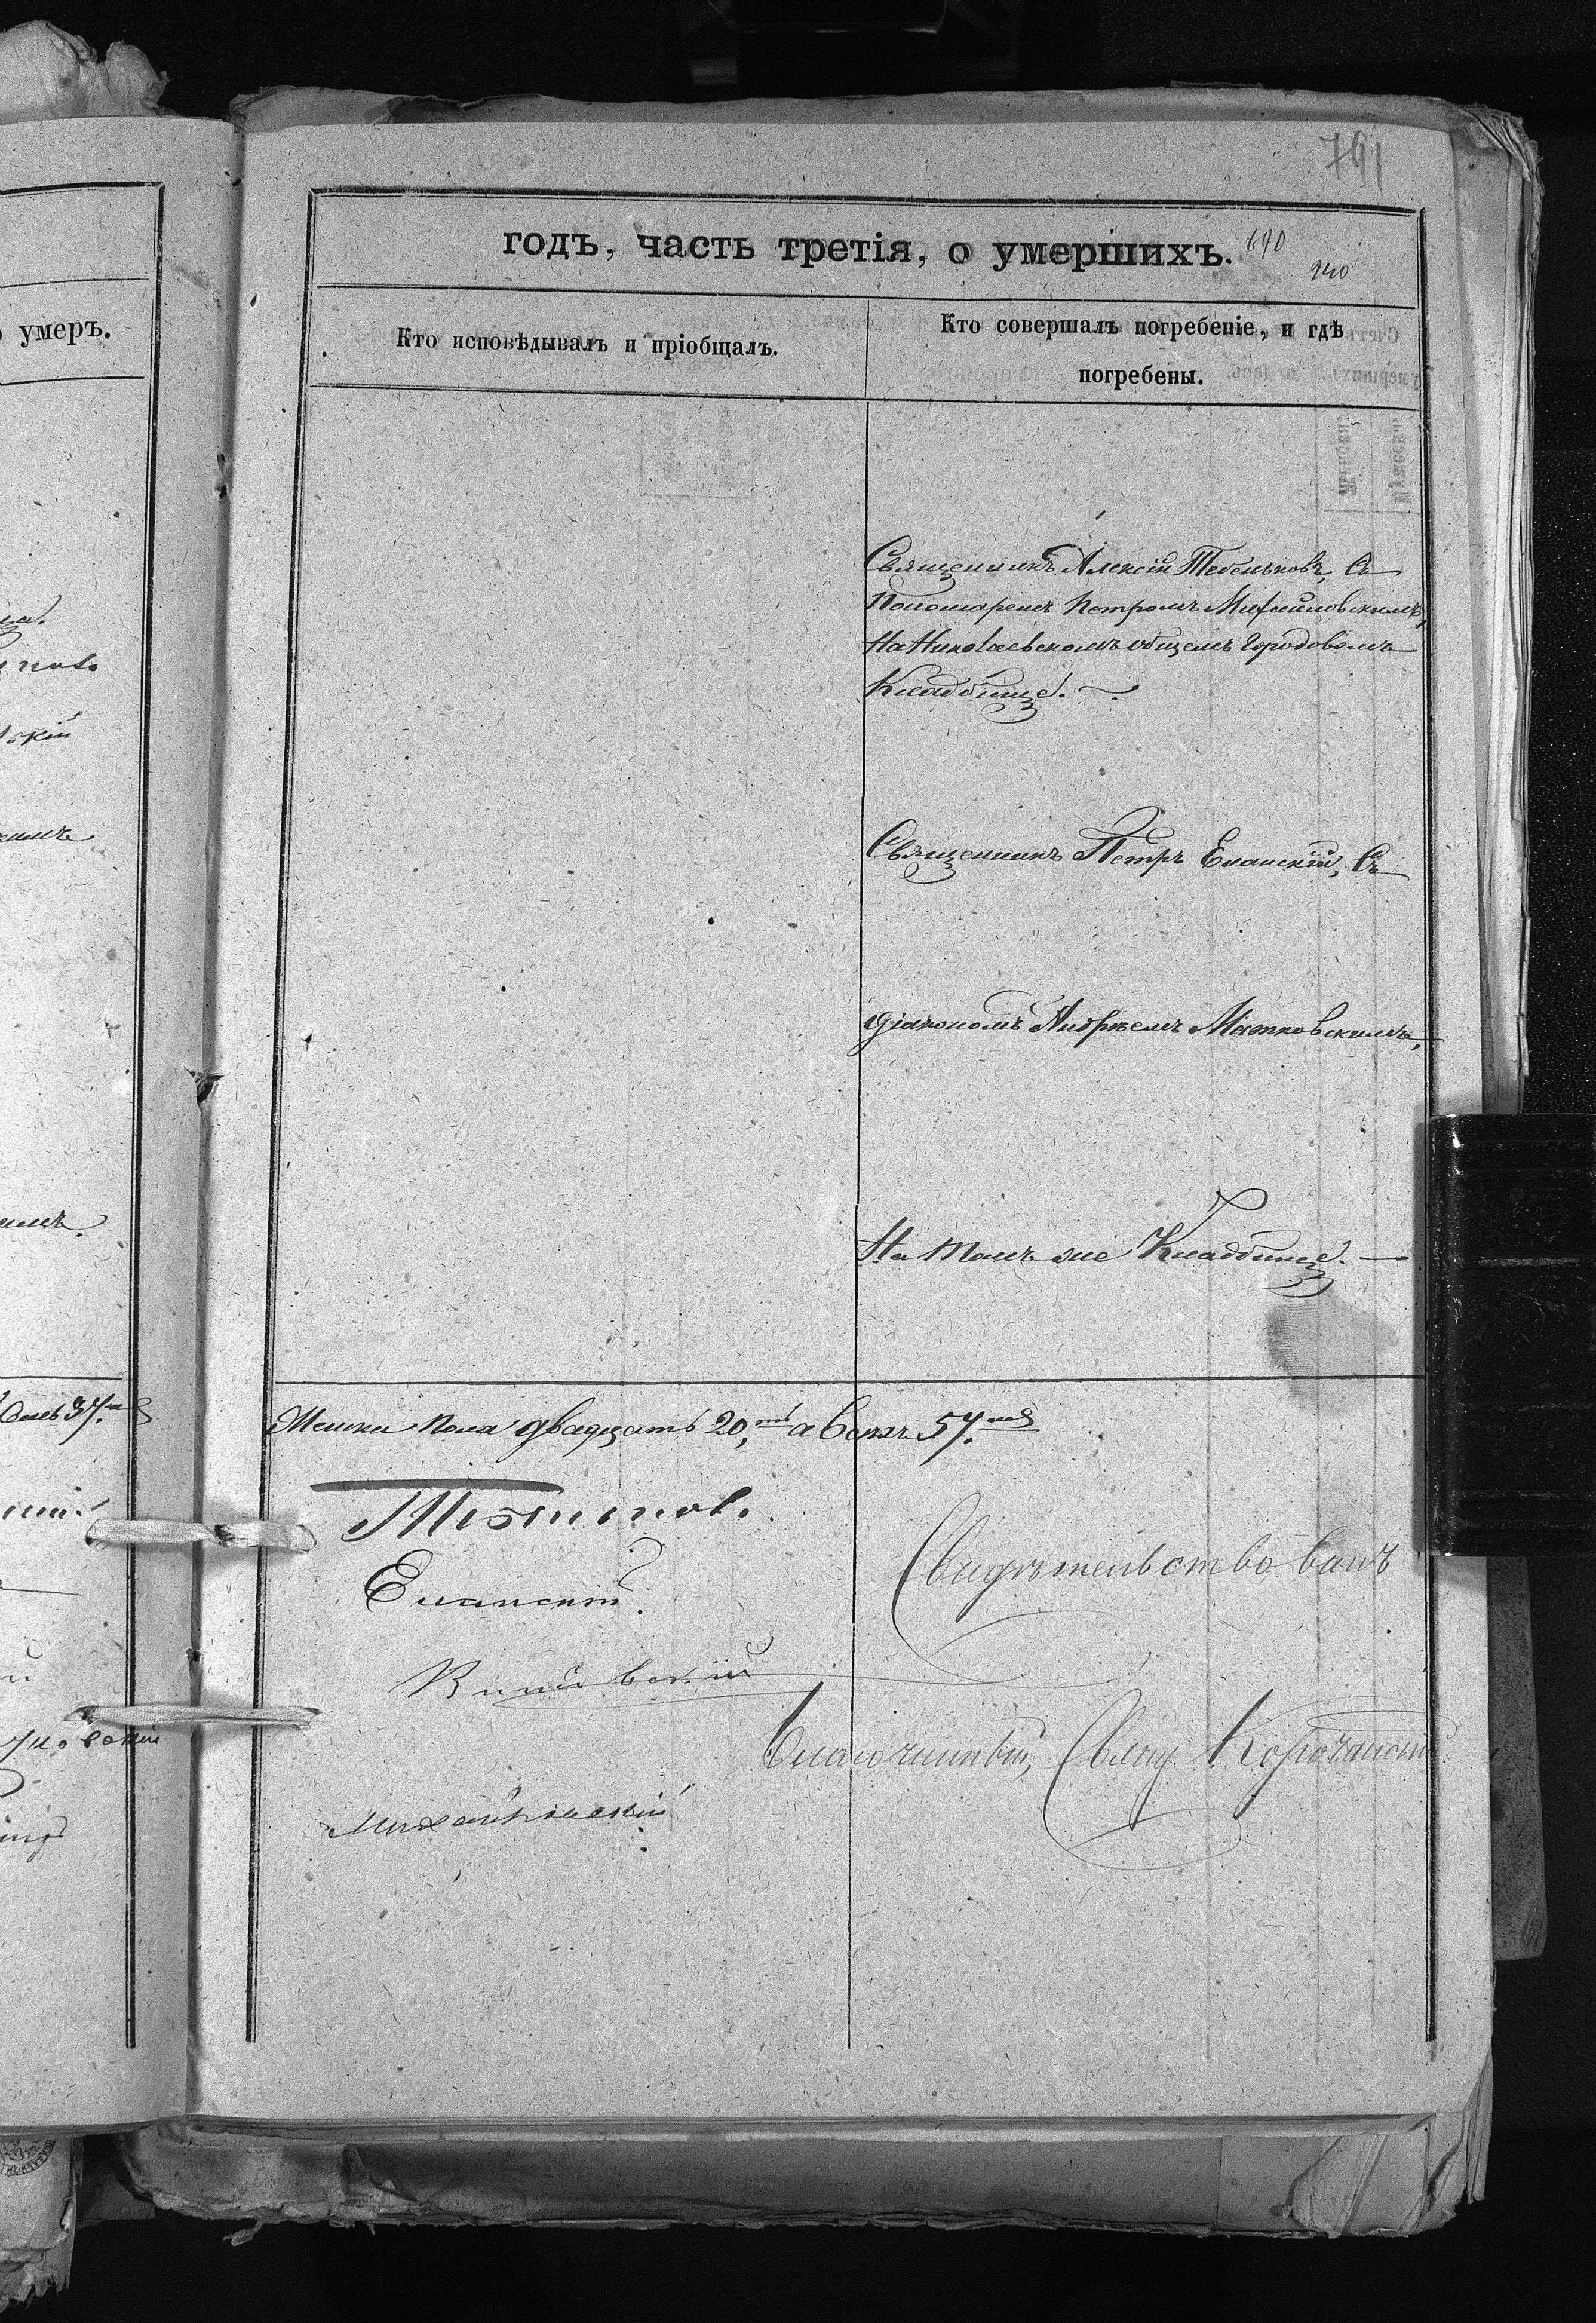 791
годъ, часть третія, о умершихъ. 690
240
умеръ.
Кто исповѣдывалъ и пріобщалъ.
Кто совершалъ погребеніе, и гдѣ
погребены.
Священникъ Алексій Тебеньковъ, Съ
Пономаремъ Петромъ Михайловскимъ,
На Николаевскомъ общемъ Городовомъ
Кладбище.
Священникъ Петръ Еланскій, Съ
діакономъ Андреемъ Матковскимъ,
На томъ же Кладбище.
37.
Женска пола двадцать 20, а всехъ 57.
Еланскій.
Свидѣтельствовалъ
Благочинный, Свящ.
Михайловскій